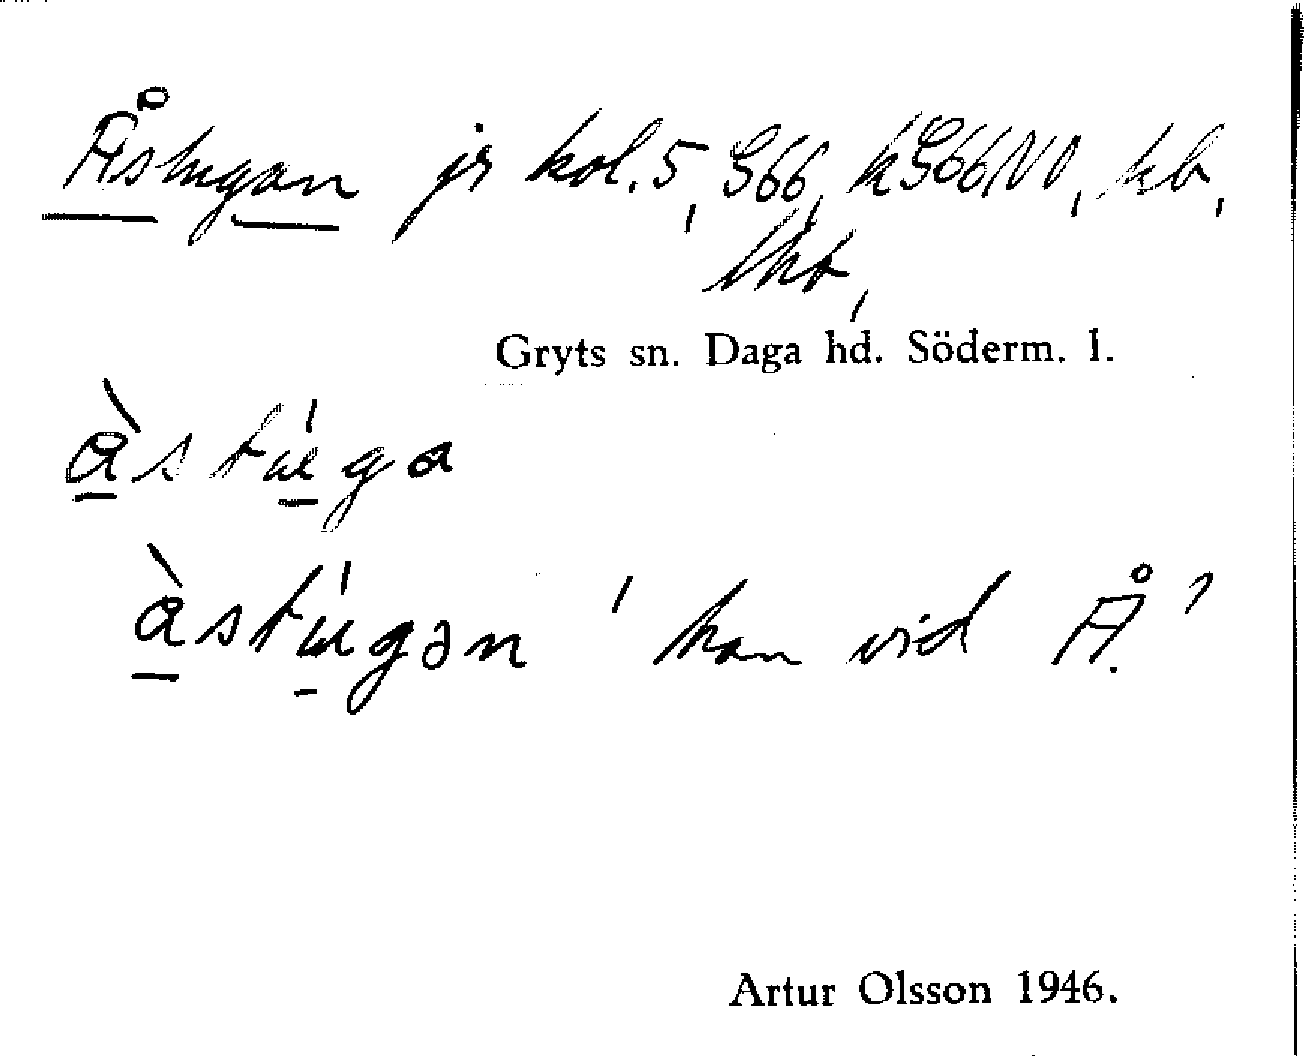 Åstugan jr kol. 5, G66, kG66NV, kb,
lht,
Gryts sn. Daga hd. Söderm. l.
àstúga
àstúgən 'han vid Å.'
Artur Olsson 1946.